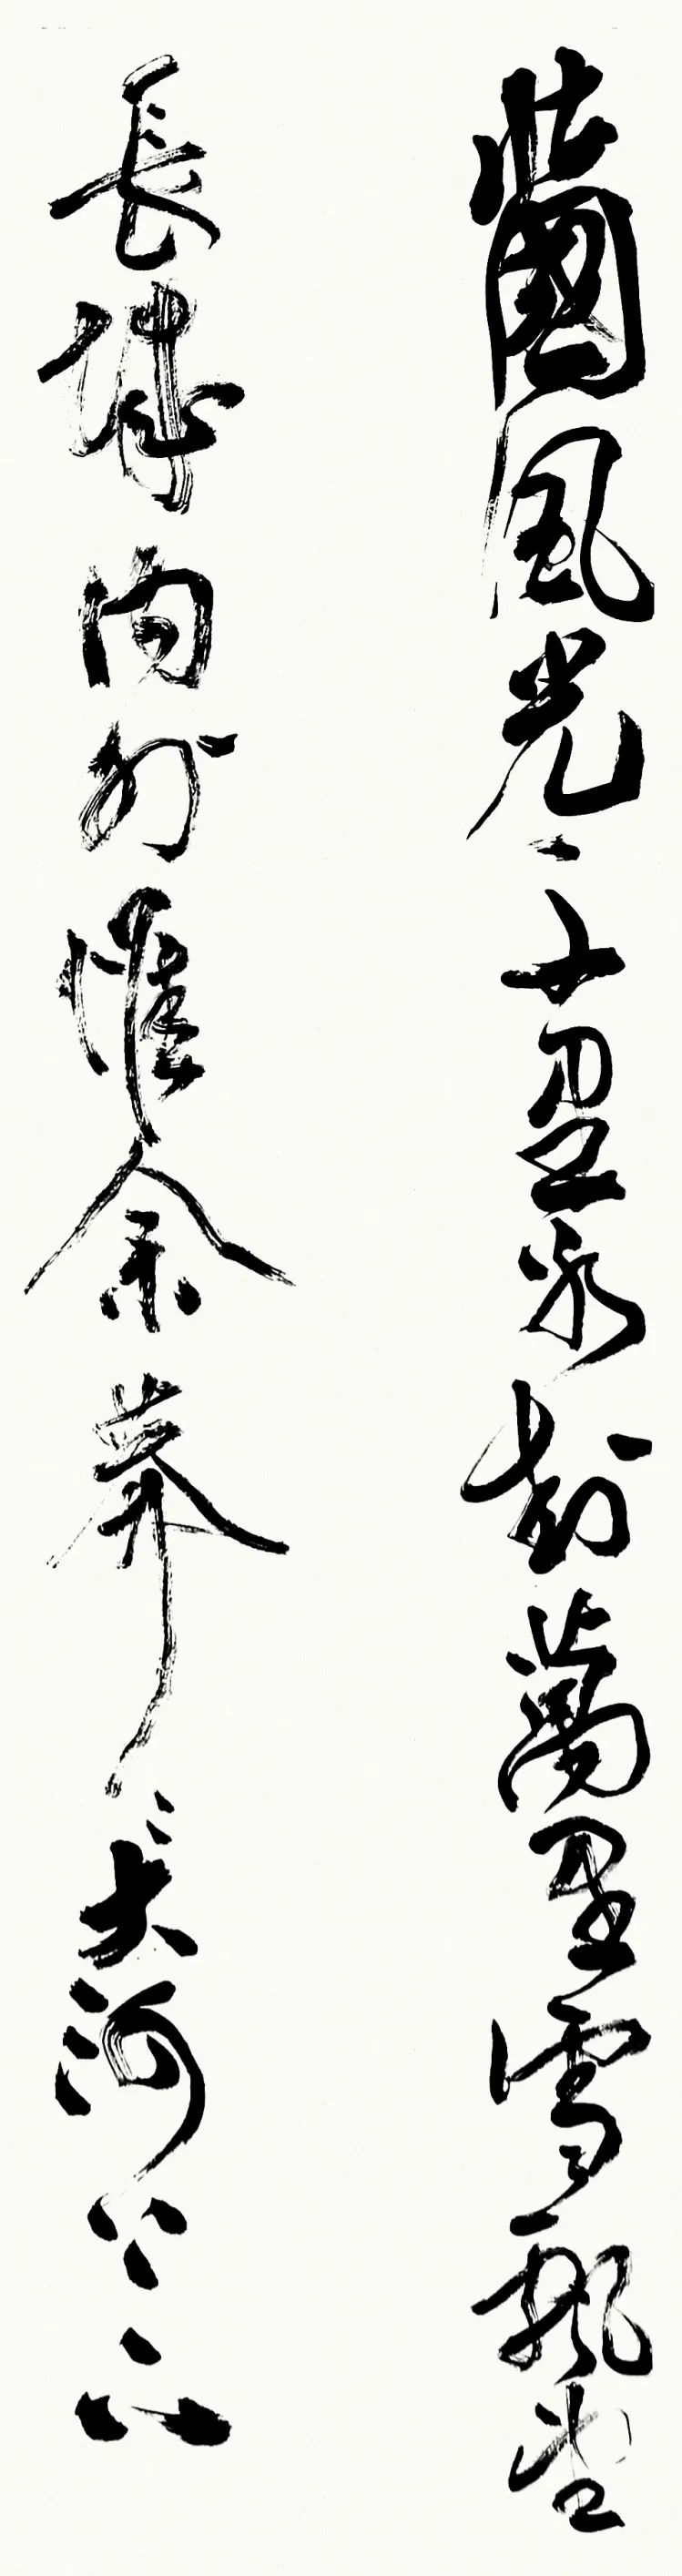 國風光千里冰封萬里雪飄望
長城內外惟余莽〻大河上下